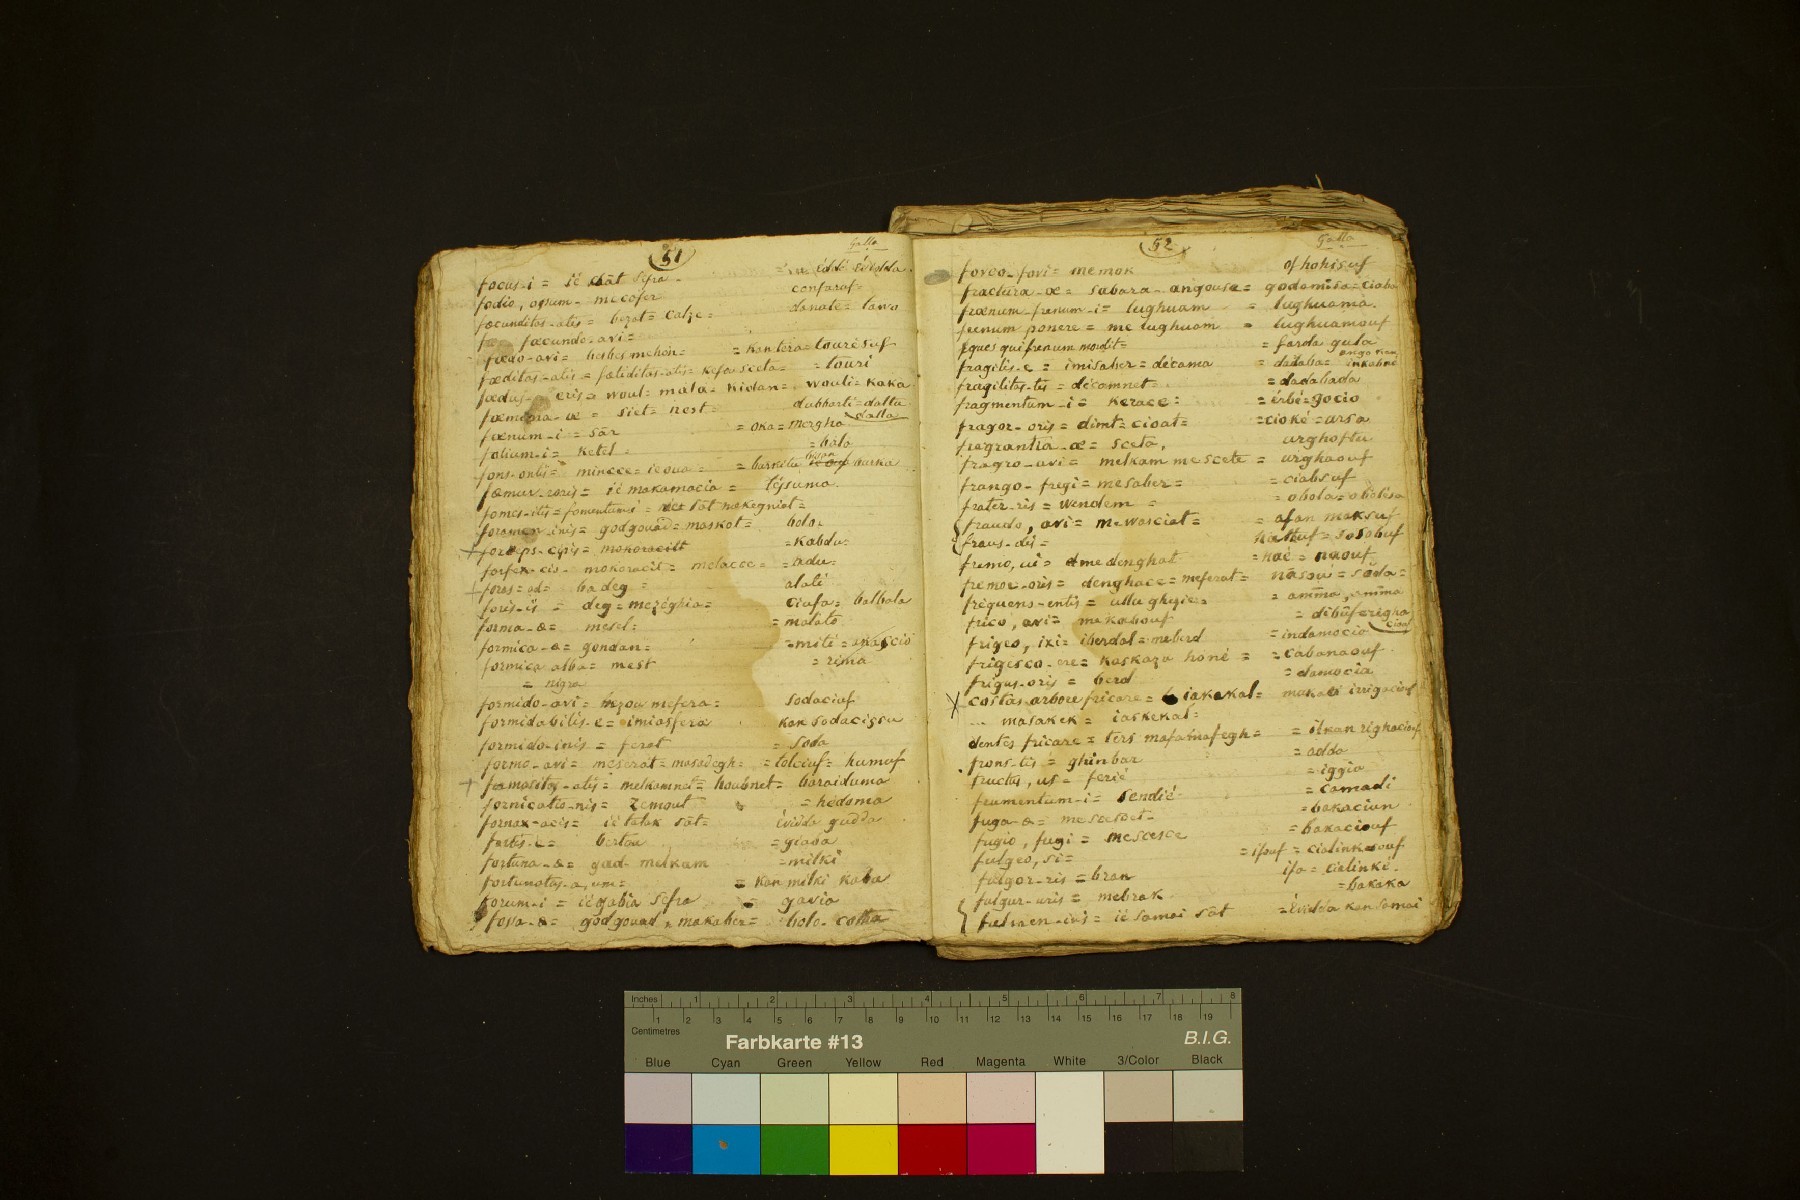 51
Galla
focus-i = ié sāt sefra =
= iddó évidda.
fodio, ossum- mecofer
confaruf=
fœcunditas-atis = bezat= calze=
danate= tawo
fœcundo-avi=
fœdo-avi= besbes mehon=
= kan tèra= touresuf
fœditas-atis = fœtiditas-atis= kefou sceta=
= touri
fœdus- eris= woul= mala= kidan=
wouli= kaka
fœmina-æ = siet= nest=
dubbarti= daltu
dalla
fœnum-i = sār
= oka= mergha
folium-i= ketel=
= bala
fons-ontis= mincce= ie oua=
= burkitu burka
fœmur-oris= ié makamacia =
tejsuma.
fomes-itis= fomentum=
foramen-inis= godgouad= maskot=
bolo=
+ forceps-cipis= mokoracitt
= kabdu=
forfex-cis- mokoracit= melacce=
= adu=
+ foras= ad= badeg =
alati
foris-is = deg= mezeghia=
ciufa= balbala
forma-æ= mesel=
= malata
formica-æ= gondan=
= miti=
formica alba= mest
= rima
= nigra
formido-avi= mefera=
sodaciuf
formidabilis-e= imiasfera
kan sodacissu
formido-inis = ferat
= soda
formo-avi= meserat= masadegh=
= tolciuf= humuf
+ formositas-atis= melkamnet= houbnet=
baraiduma
fornicatio-nis= zemout
= hedoma
fornax-acis= ié talak sāt=
évidda gudda
fortis-e= bertou
= giaba
fortuna-æ= gad melkam
= milki
fortunatus-a, um=
= kan milki kaba
forum-i = ié gabia sefra
= gavia
fova-æ= godgouad, makaber=
bolo- cotta
52
Galla
foveo-fovi= memok
of hohisuf
fractura-æ= sabara-angousa=
godamisa= ciaba
frœnum-frenum-i= lughuam
= lughuama.
frenum ponere= me lughuam
= lughuamouf
eques qui frenum mordit=
= farda gula
fragilis-e = imisaber= décama
= dadaba=
fragilitas-tis = décamnet=
= dadabada
fragmentum-i= kerace=
= érbé= gocio
fragor-oris= dimt= cioat=
= cioké= ursa
fragrantia-æ= sceta,
urghoftu
fragro-avi= melkam mescete=
urghaouf
frango-fregi= mesaber=
= ciabsuf
frater-ris= wendem =
= obola= obolésa
fraudo, avi= mewasciat=
= afan maksuf
fraus-dis=
fremo, ui= medenghat
= naé= naouf
fremor-oris= denghace= meferat=
nāsoú= sōda=
frequens-entis= ullughizie=
= amma, amma
frico, avi= mekabouf
= dibūf erigha
cioal
frigeo, ixi= iberdal= meberd
= indamocio
frigesco-ere= kaskaza honé =
= cabanaouf
frigus-oris = berd
= damocia
X costas arbore fricare= iakakal=
makau irrigaciouf
... masakek= iakekal=
dentes fricare= ters mafafmafegh=
= ilkan righaciouf
frons-tis= ghinbar
= adda
fructus, us= ferié
= iggia
frumentum-i= sendié
= camadi
fuga-æ= mescesoet=
= bakacian
fugio, fugi= mescesce
= bakaciouf
fulgeo, si=
= ifouf= cialinkaouf
fulgor-ris= bran
ifa= cialinké.
fulgur-uris= mebrak
= bakaka
fulmen-inis= ié samai sāt
= évidda kan samai
Inches 1 2 3 4 5 6 7 8
1 2 3 4 5 6 7 8 9 10 11 12 13 14 15 16 17 18 19
Centimetres
Farbkarte #13
B.I.G.
Blue Cyan Green Yellow Red Magenta White 3/Color Black